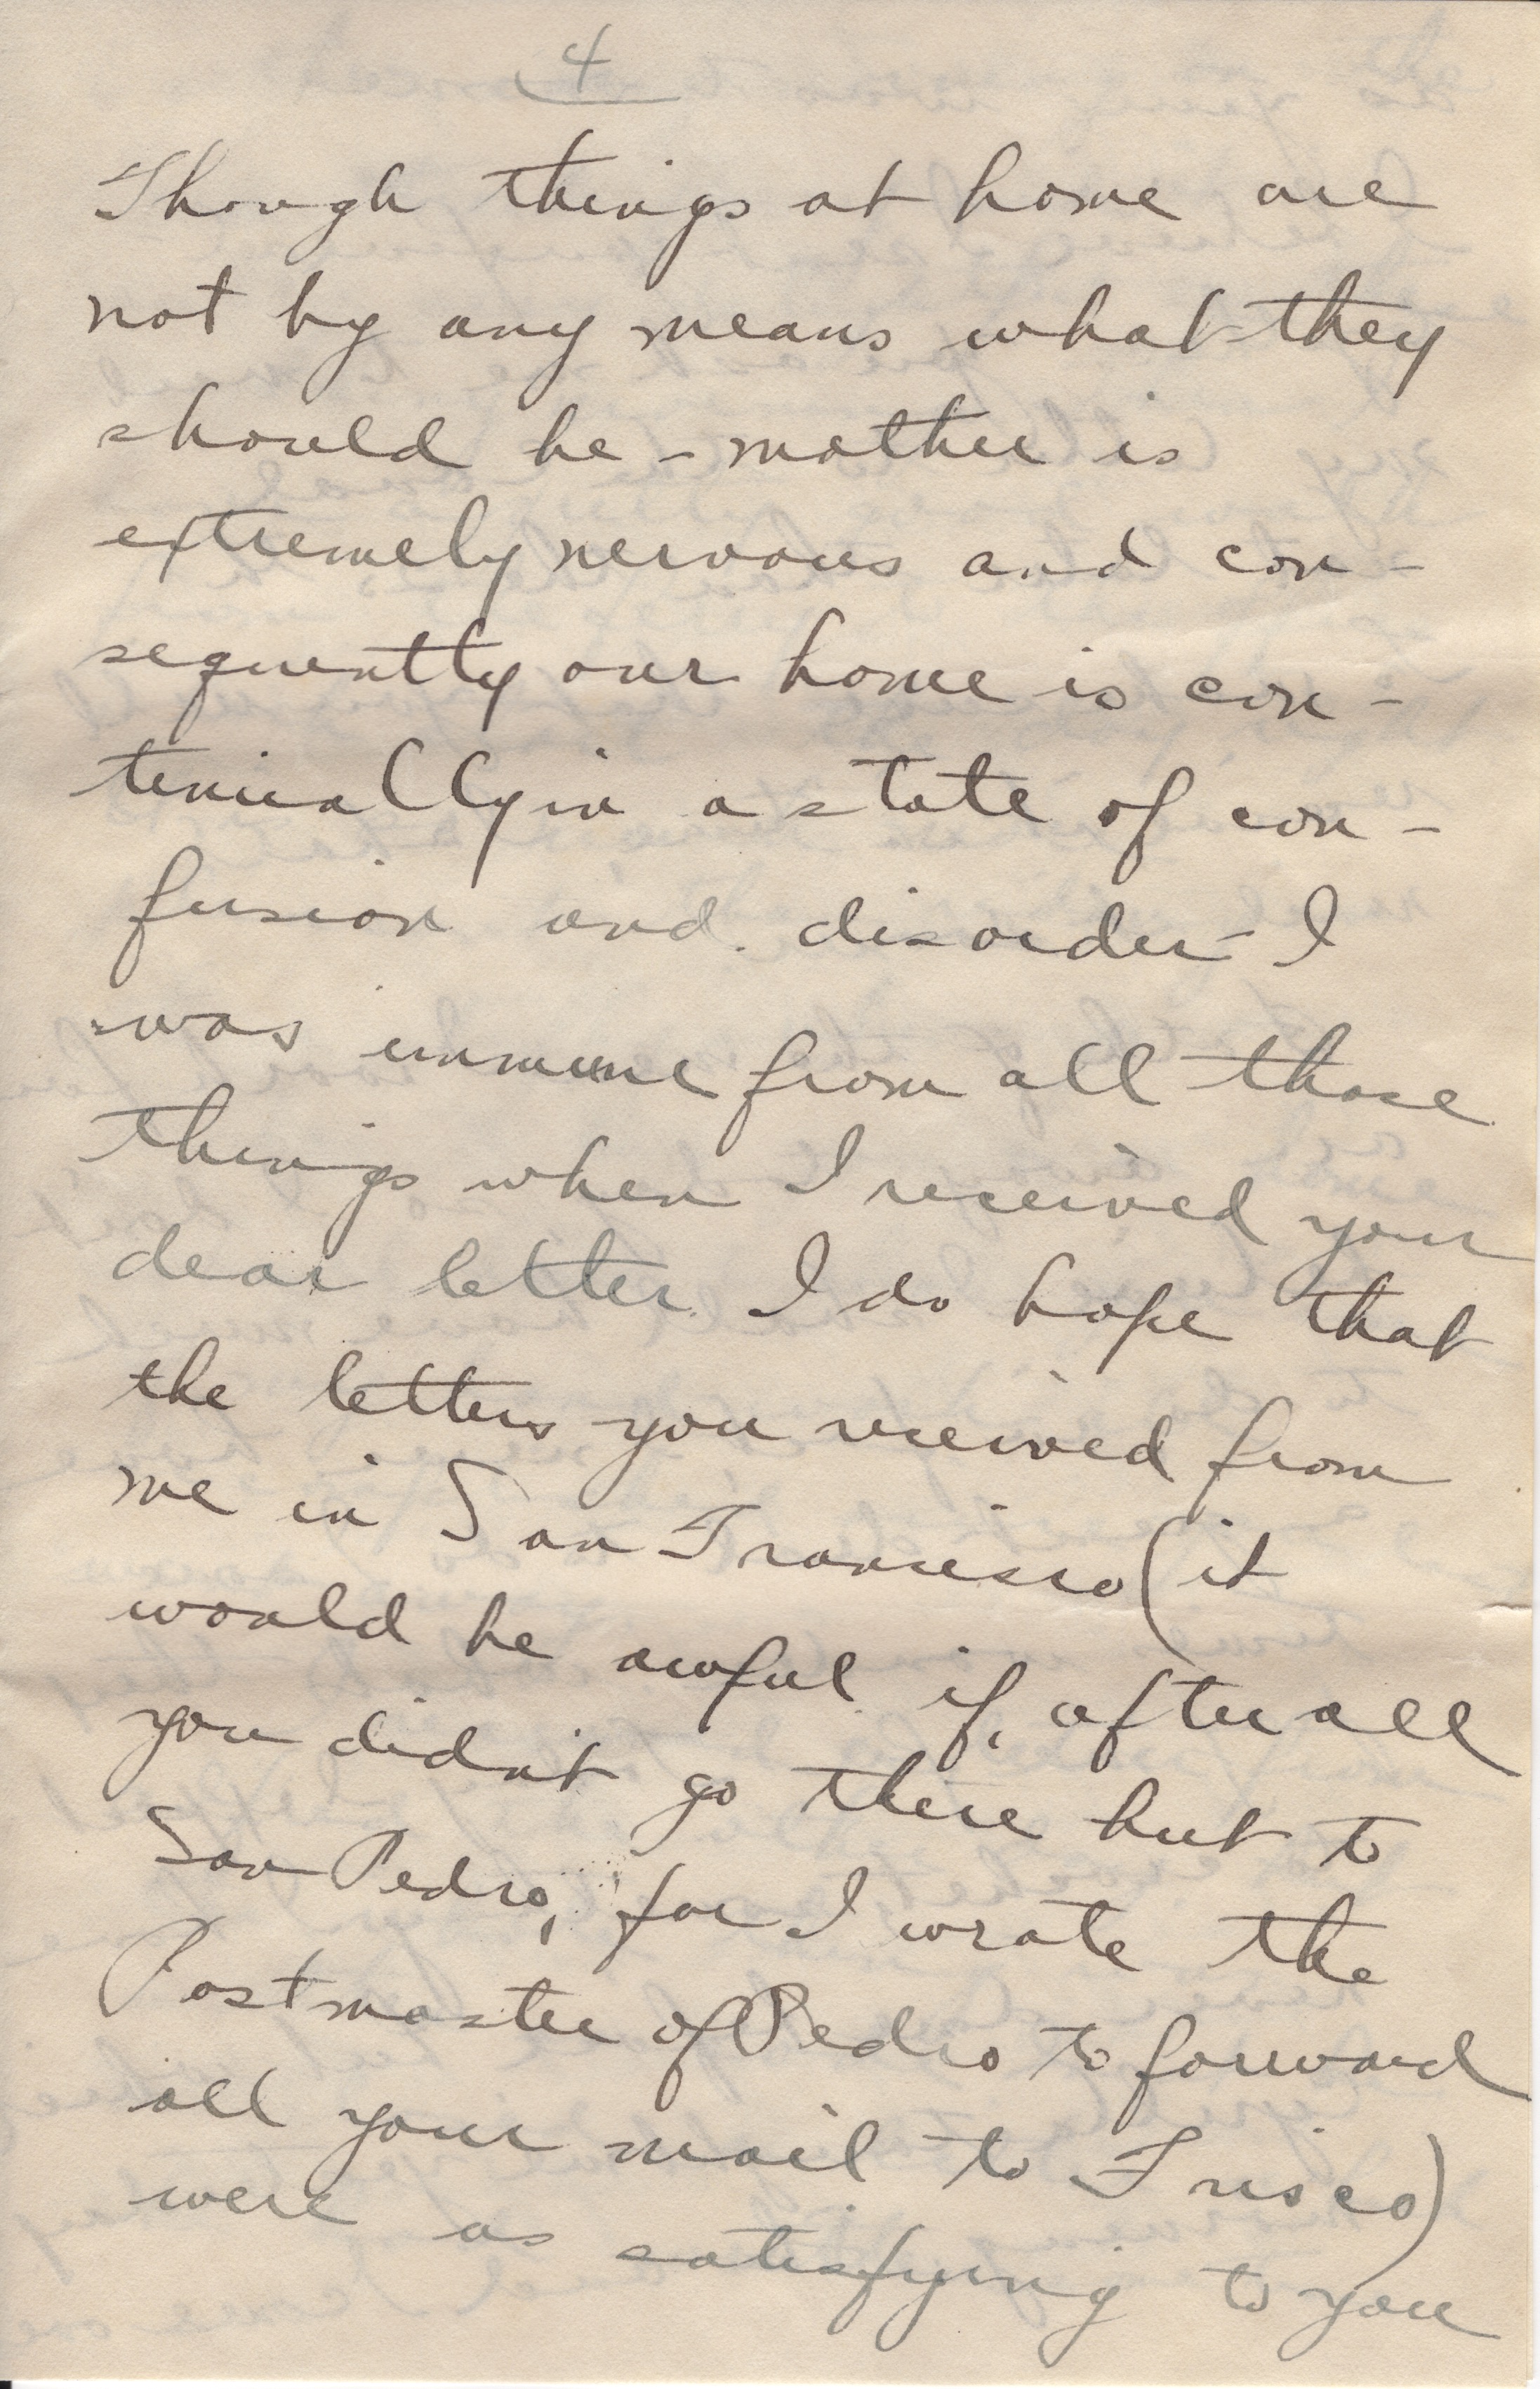 4
Though things at home are
not by any means what they
should be - mother is
extremely nervous and con-
sequently our home is con-
tinually in a state of con-
fusion and disorder - I
was immune from all those
things when I received your
dear letter. I do hope that
the letters you received from
me in San Francisco (it
would be awful if, after all
you didn't go there but to
San Pedro, for I wrote the
Postmaster of Pedro to forward
all your mail to Frisco)
were as satisfying to you